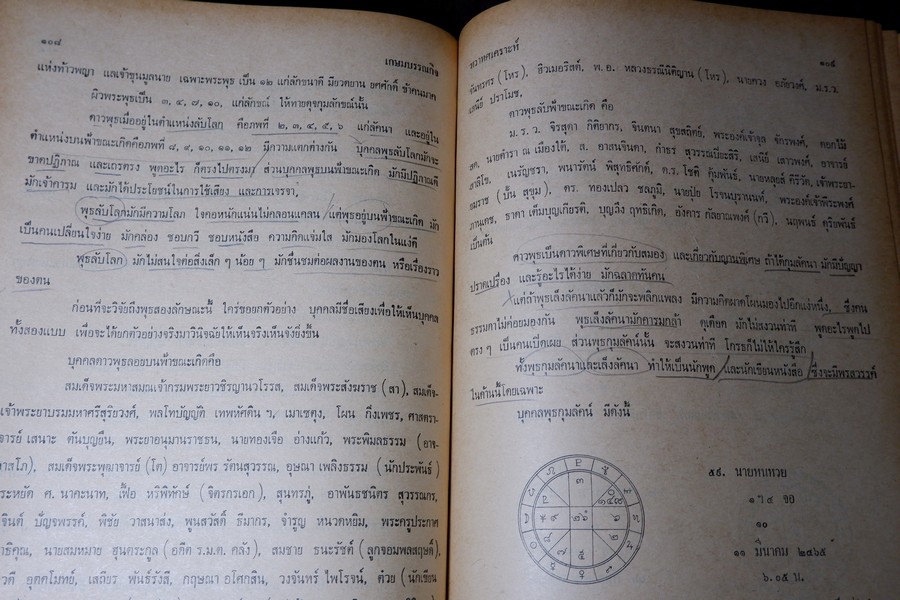 ๑๐๔
เกษมบรรณกิจ
แห่งท้าวพญา และเจ้าขุนมูลนาย เฉพาะพระพุธ เป็น ๑๒ แก่ลัขนาดี มียวดยาน ยศศักดิ์ ข้าคนมาก
ผิวพระพุธเป็น ๓, ๔, ๗, ๑๐, แก่ลักขณ์ ให้ทายดุจกุมลักขณ์นั้น
ดาวพุธเมื่ออยู่ในตำแหน่งลับโลก คือภพที่ ๒, ๓, ๔, ๕, ๖ แก่ลัคนา และอยู่ใน
ตำแหน่งบนฟ้าขณะเกิดคือภพที่ ๘, ๙, ๑๐, ๑๑, ๑๒ มีความแตกต่างกัน บุคคลพุธลับโลกมักจะ
ขาดปฏิภาณ และเถรตรง พูดอะไร ก็ตรงไปตรงมา ส่วนบุคคลพุธบนฟ้าขณะเกิด มักมีปฏิภาณดี
มักเจ้าคารม และมักได้ประโยชน์ในการใช้เสียง และการเจรจา
พุธลับโลกมักมีความโลภ ใจคอหนักแน่นไม่คลอนแคลน แต่พุธอยู่บนฟ้าขณะเกิด มัก
เป็นคนเปลี่ยนใจง่าย มักคล่อง ชอบกวี ชอบหนังสือ ความคิดแจ่มใส มักมองโลกในแง่ดี
พุธลับโลก มักไม่สนใจต่อสิ่งเล็ก ๆ น้อย ๆ มักชื่นชมต่อผลงานของตน หรือเรื่องราว
ของตน
ก่อนที่จะวิจัยถึงพุธสองลักษณะนี้ ใคร่ขอยกตัวอย่าง บุคคลมีชื่อเสียงเพื่อให้เห็นบุคคล
ทั้งสองแบบ เพื่อจะได้ยกตัวอย่างจริงมาวินิจฉัยให้เห็นจริงเห็นจังยิ่งขึ้น
บุคคลดาวพุธลอยบนฟ้าขณะเกิดคือ
สมเด็จพระมหาสมณเจ้ากรมพระยาวชิรญานวโรรส, สมเด็จพระสังฆราช (สา), สมเด็จ-
เจ้าพระยาบรมมหาศรีสุริยวงศ์, พลโทบัญญัติ เทพหัศดิน ว, เมาเซตุง, โผน กิ่งเพชร, ศาสตรา-
จารย์ เสนาะ ตันบุญยืน, พระยาอนุมานราชธน, นายทองเจือ อ่างแก้ว, พระพิมลธรรม (อาจ-
าสโภ), สมเด็จพระพุฒาจารย์ (โต) อาจารย์พร รัตนสุวรรณ, อุษณา เพลิงธรรม (นักประพันธ์)
ระหยัด ศ. นาคะนาท, เฟื้อ หริพิทักษ์ (จิตรกรเอก), สุนทรภู่, อาพันธชนิตร สุวรรณกร,
จินต์ ปัญจพรรค์, พิชัย วาสนาส่ง, พูนสวัสดิ์ ธีมากร, จำรูญ หนวดหยิม, พระครูประกาศ
าธิคุณ, นายสมหมาย ฮุนตระกูล (อดีต ร.ม.ต. คลัง), สมชาย ธนะรัชต์ (ลูกจอมพลสฤษดิ์),
วดี อุดดโมทย์, เสถียร พันธ์รังสี, กฤษณา อโศกสิน, วงจันทร์ ไพโรจน์, ด้วย (นักเขียน
ทวาทศเคราะห์
๑๐๕
จันทรคร (โหร), ฮิวเมอริสต์, พ.อ. หลวงธรณีนิติญาน (โหร), นายควง อภัยวงศ์, ม.ร.ว.
เสนีย์ ปราโมช,
ดาวพุธลับฟ้าขณะเกิด คือ
ม.ร.ว. จิรสุดา กิติยากร, จินตนา สุขสถิตย์, พระองค์เจ้าจุล จักรพงศ์, ดอกไม้
สด, นายตำรา ณ เมืองใต้, ส. อาสนจินดา, กำธร สุวรรณปิยะสิริ, เสนีย์ เสาวพงศ์, อาจารย์
สาลิโข, เนรัญชรา, พนารัตน์ พิสุทธิศักดิ์, ด.ร. โชติ คุ้มพันธ์, นายหลุยส์ คีรีวัต, เจ้าพระยา-
ยมราช (ปั้น สุขุม), ดร. ทองเปลว ชลภูมิ, นายปุ่ย โรจนบุรานนท์, พระองค์เจ้าพระองค์
ภานุเดช, ธาดา เต็มบุญเกียรติ, บุญถึง ฤทธิเกิด, อังคาร กัลยาณพงศ์ (กวี), นฤพนธ์ ดุริยพันธ์
เป็นต้น
ดาวพุธเป็นดาวพิเศษที่เกี่ยวกับสมอง และเกี่ยวกับญาณพิเศษ ถ้าให้กุมลัคนา มักมีปัญญา
ปราดเปรื่อง และรู้อะไรได้ง่าย มักฉลาดทันคน
แต่ถ้าพุธเล็งลัคนาแล้วก็มักจะพลิกแพลง มีความคิดผาดโผนมองไปอีกแง่หนึ่ง, ซึ่งคน
ธรรมดาไม่ค่อยมองกัน พุธเล็งลัคนามักคารมกล้า ดุเดียด มักไม่สงวนท่าที พูดอะไรพูดไป
ตรง ๆ เป็นคนเปิดเผย ส่วนพุธกุมลัคน์นั้น จะสงวนท่าที โกรธก็ไม่ให้ใครรู้สึก
ทั้งพุธกุมลัคนาและเล็งลัคนา ทำให้เป็นนักพูด และนักเขียนหนังสือ ซึ่งจะมีพรสวรรค์
ในด้านนี้โดยเฉพาะ
บุคคลพุธกุมลัคน์ มีดังนี้
๕๙. นายทนเหวย
๑ ๆ ๔ จอ
๑๐
๑๑ มีนาคม ๒๔๖๕
๖.๐๕ น.